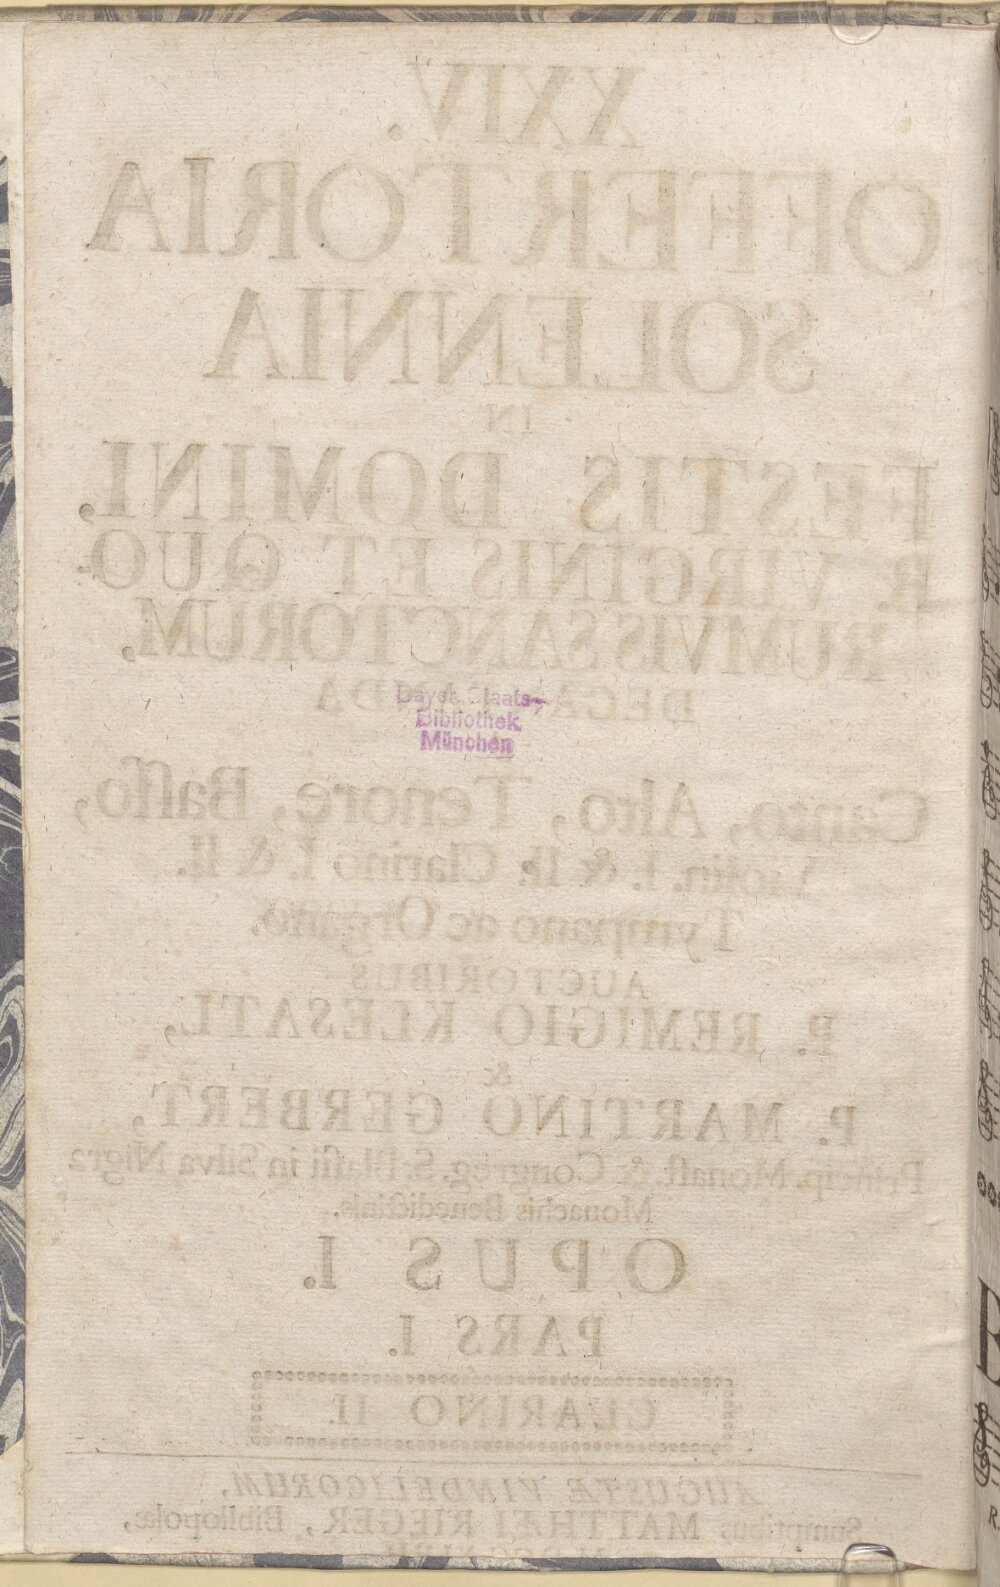 XXIV.
OFFERTORIA
SOLENNIA
IN
FESTIS DOMINI,
B. VIRGINIS ET QUO-
RUMVIS SANCTORUM,
DECANTANDA
Bayer. Staats-
Bibliothek
München
Canto, Alto, Tenore, Baſſo,
Violin. I. & II. Clarino I. & II.
Tympano ac Organo.
AUCTORIBUS
P. REMIGIO KLESATL,
&
P. MARTINO GERBERT,
Princip. Monaſt. & Congreg. S. Blaſii in Silva Nigra
Monachis Benedictinis.
OPUS I.
PARS I.
CLARINO II.
AUGUSTÆ VINDELICORUM,
Sumptibus MATTHÆI RIEGER, Bibliopolæ,